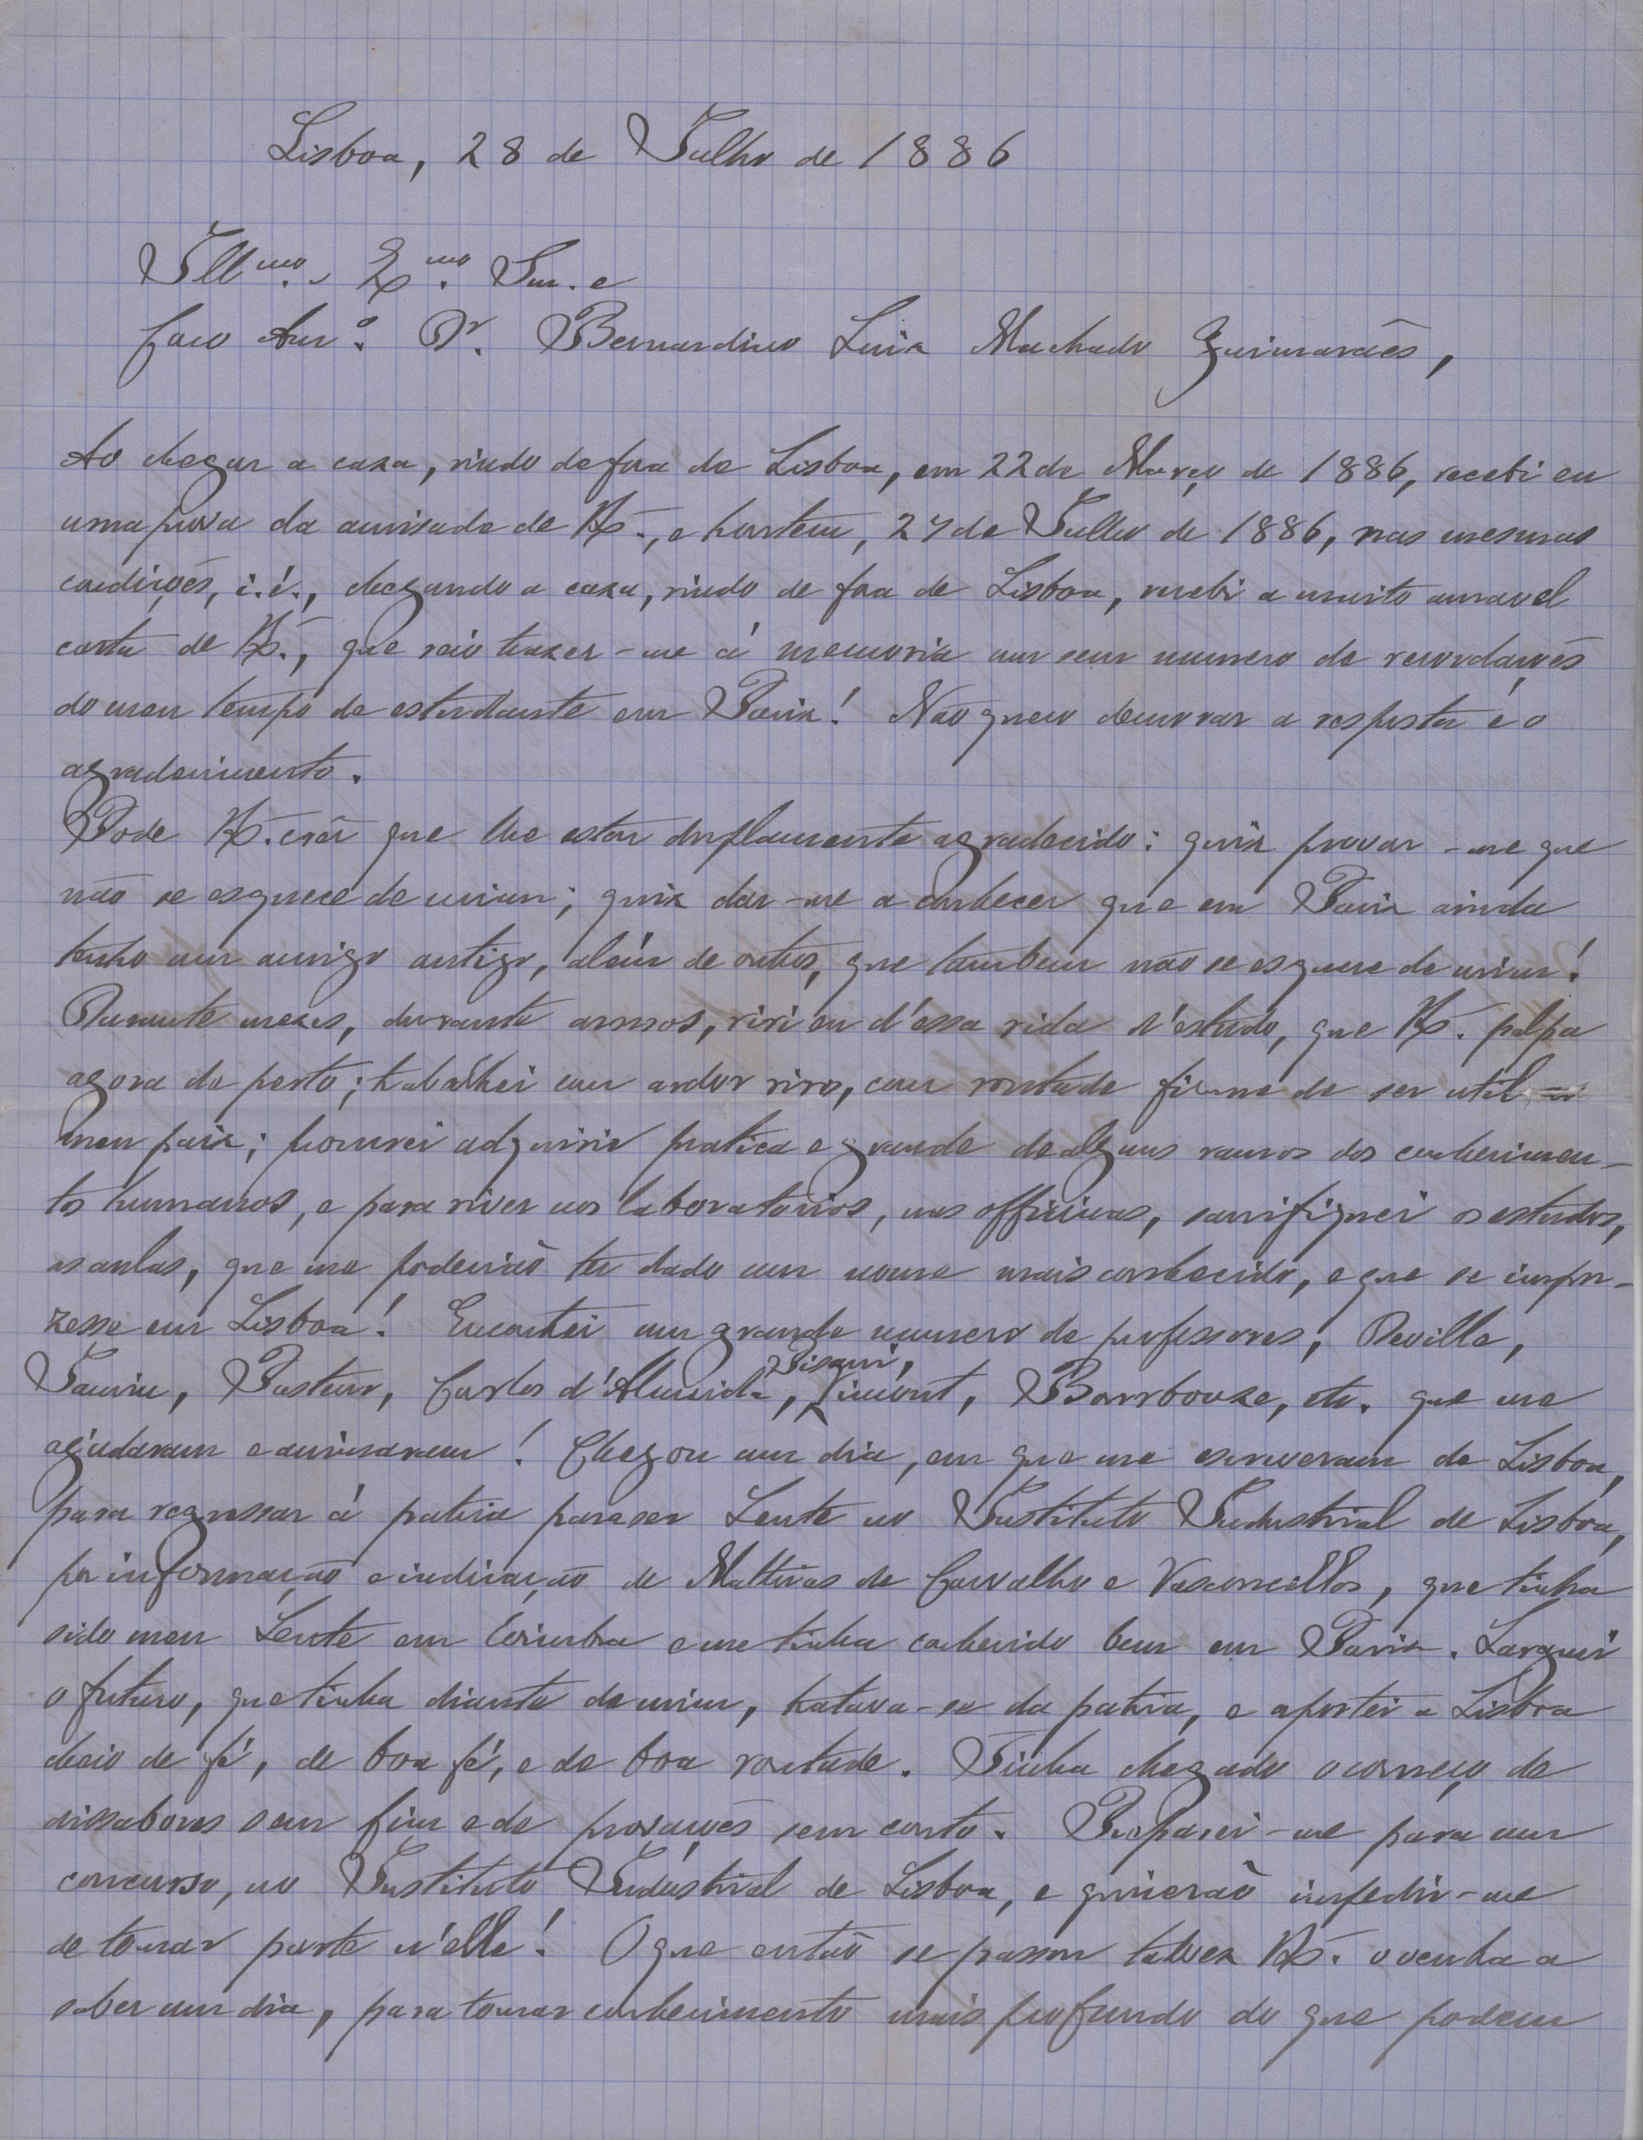 Lisboa, 28 de Julho de 1886
Ill.mo e Ex.mo Snr. e
Caro Am.o Dr. Bernardino Luiz Machado Guimarães,
Ao chegar a caza, vindo de fora de Lisboa, em 22 de Março de 1886, recebi eu
uma prova da amisade de V.Exª., e hontem, 27 de Julho de 1886, nas mesmas
condições, i.é., chegando a caza, vindo de fora de Lisboa, recebi a muito amavel
carta de V.Exª., que veio trazer-me á memoria um sem numero de recordações
do meu tempo de estudante em Pariz! Não quero demorar a resposta e o
agradecimento.
Pode V.Exª. crêr que lhe estou duplamente agradecido: quiz provar-me que
não se esquece de mim; quiz dar-me a conhecer que em Pariz ainda
tenho um amigo antigo, além de outros, que tambem não se esquece de mim!
Durante mezes, durante annos, vivi eu d'essa vida d'estudo, que V.Exª. palpa
agora de perto; trabalhei com ardor vivo, com vontade firme de ser util
meu paiz; procurei adquirir pratica e grande de alguns ramos dos conhecimen-
tos humanos, e para viver nos laboratorios, nas officinas, sacrifiquei os estudos,
as aulas, que me poderião ter dado um nome mais conhecido, e que se impo-
zesse em Lisboa! Encontrei um grande numero de professores, Deville,
Jamin, Pasteur, Carlos d'Almeida, Pisani, Barrbouze, etc. que me
ajudaram e animaram! Chegou um dia, em que me escreveram de Lisboa,
para regressar á patria para ser Lente no Instituto Industrial de Lisboa,
por informação e indicação de Mathias de Carvalho e Vasconcellos, que tinha
sido meu Lente em Coimbra e me tinha conhecido bem em Pariz. Larguei
o futuro, que tinha diante de mim, tratava-se da patria, e aportei a Lisboa
cheio de fé, de boa fé, e de boa vontade. Tinha chegado o começo de
dissabores sem fim e de provações sem conto. Preparei-me para um
concurso, no Instituto Industrial de Lisboa, e quizerão impedir-me
de tomar parte n'elle! O que então se passou talvez V.Exª. o venha a
saber um dia, para tomar conhecimento mais profundo do que podem